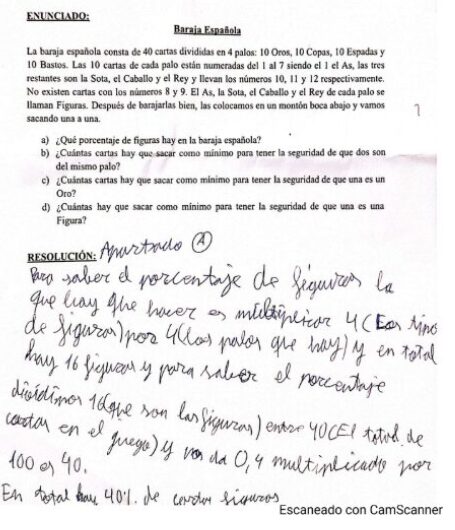 ENUNCIADO:
Baraja Española
La baraja española consta de 40 cartas divididas en 4 palos: 10 Oros, 10 Copas, 10 Espadas y
10 Bastos. Las 10 cartas de cada palo están numeradas del 1 al 7 siendo el 1 el As, las tres
restantes son la Sota, el Caballo y el Rey y llevan los números 10, 11 y 12 respectivamente.
No existen cartas con los números 8 y 9. El As, la Sota, el Caballo y el Rey de cada palo se
llaman Figuras. Después de barajarlas bien, las colocamos en un montón boca abajo y vamos
sacando una a una.
a) ¿Qué porcentaje de figuras hay en la baraja española?
b) ¿Cuántas cartas hay que sacar como mínimo para tener la seguridad de que dos son
del mismo palo?
c) ¿Cuántas cartas hay que sacar como mínimo para tener la seguridad de que una es un
Oro?
d) ¿Cuántas hay que sacar como mínimo para tener la seguridad de que una es una
Figura?
RESOLUCIÓN: Apartado A
Para saber el porcentaje de figuras la
que hay que hacer es multiplicar 4 (Los tipos
de figuras) por 4 (los palos que hay) y en total
hay 16 figuras y para saber el porcentaje
dividimos 16 (que son las figuras) entre 40 (El total de
cartas en el juego) y nos da 0,4 multiplicado por
100 es 40.
En total hay 40%. de cartas figuras
Escaneado con CamScanner